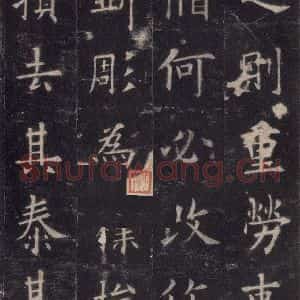 之則重勞事
循何必改作
斲彫為
損去其泰甚
Shufawang.CN